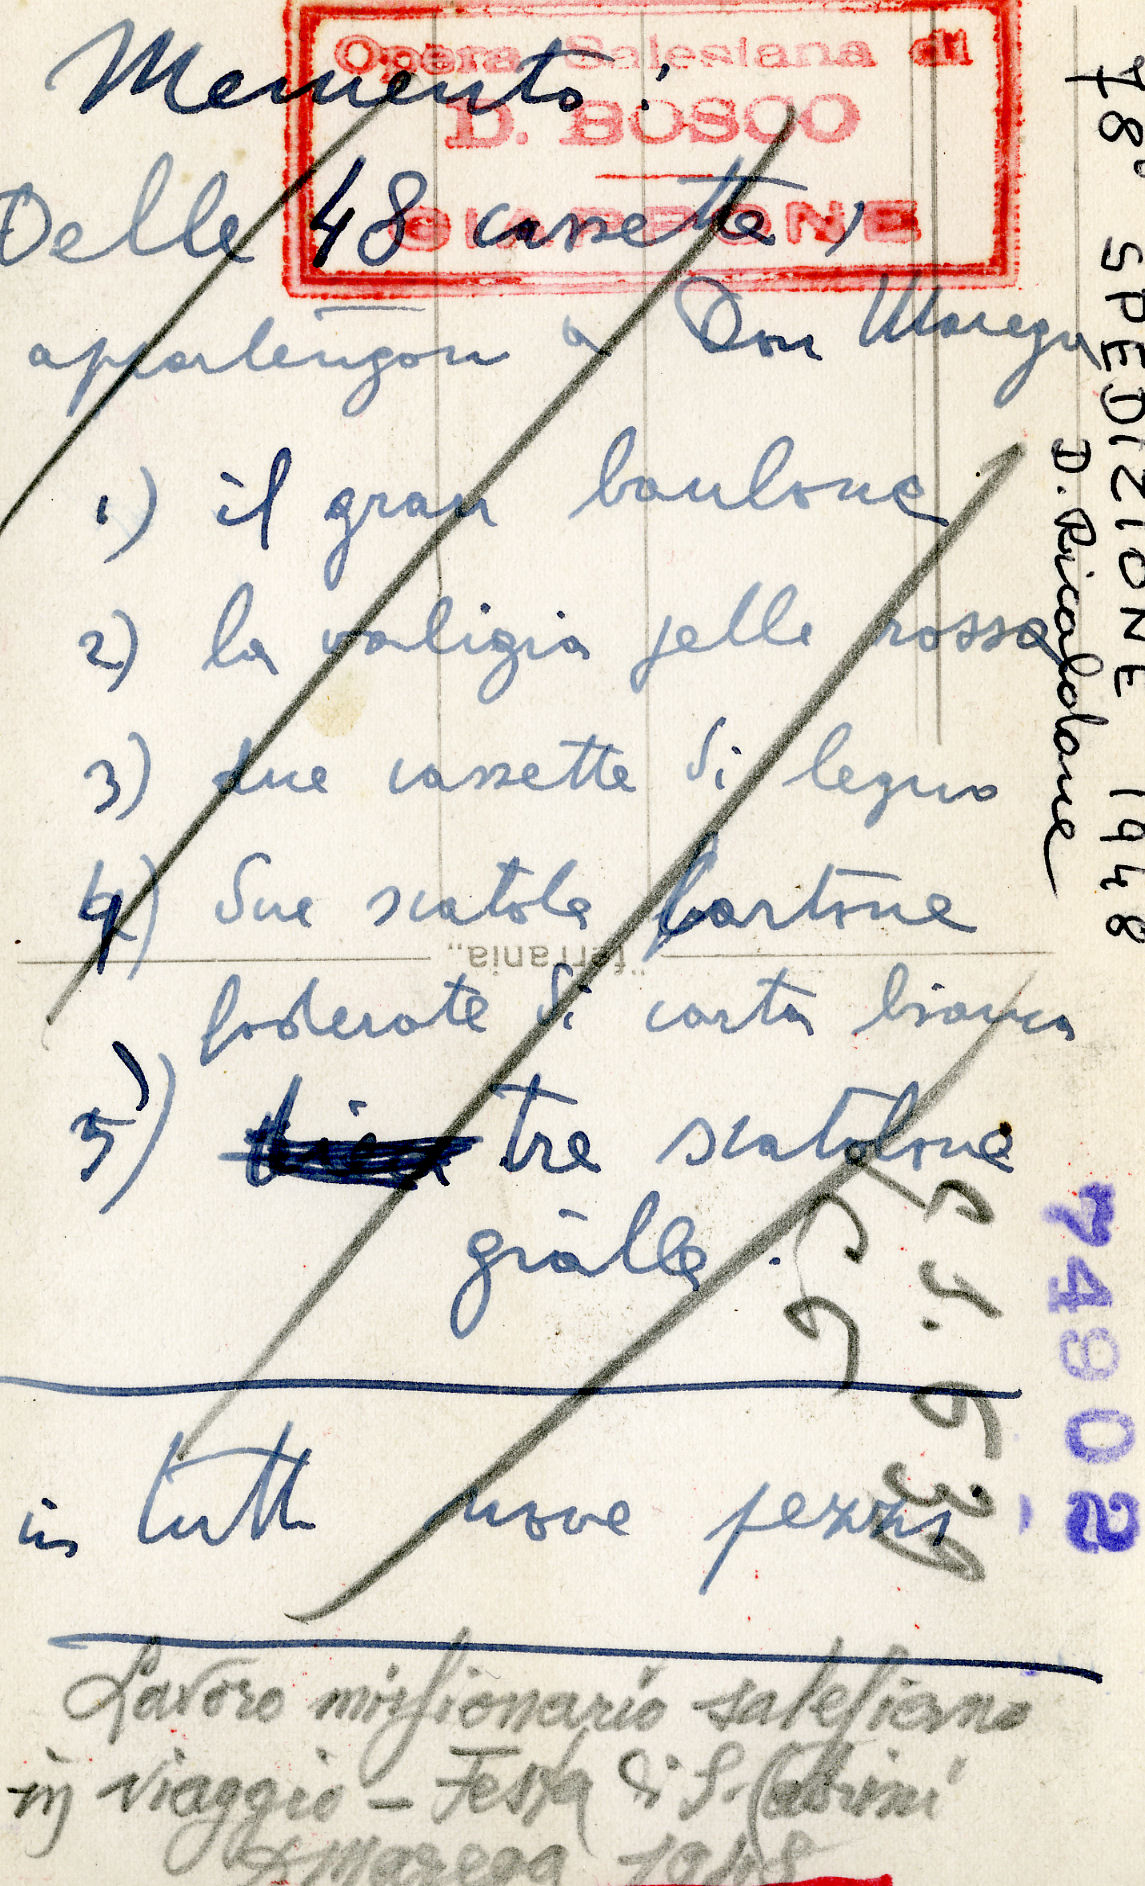 Memento:
Opera Salesiana di
D. BOSCO
GIAPPONE
Delle 48 cassette,
appartengon a Don Marega
1) il gran baulone
2) la valigia pelle rossa
3) due cassette di legno
4) due scatole cartone
foderate di carta bianca
5) tre scatolone
gialle.
in tutti nove pezzi
Lavoro missionario salesiano
in viaggio - Festa di S. Cabrini
Marega 1948
78° SPEDIZIONE 1948
D. Ricaldone
"ferrania"
74902